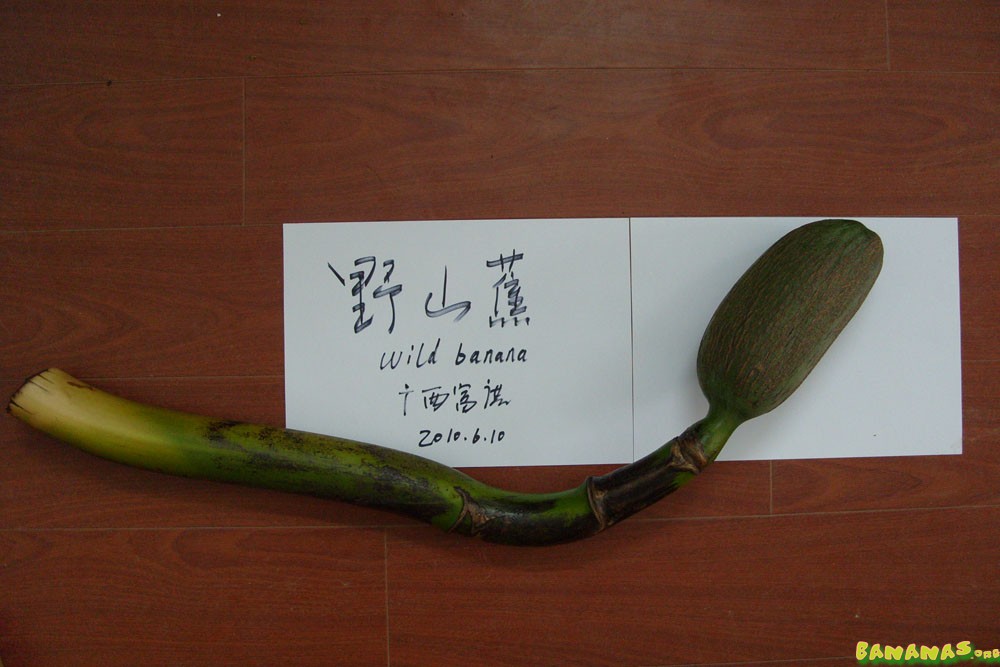 野山蕉
Wild banana
广西富祺
2010.6.10
BANANAS.ORG